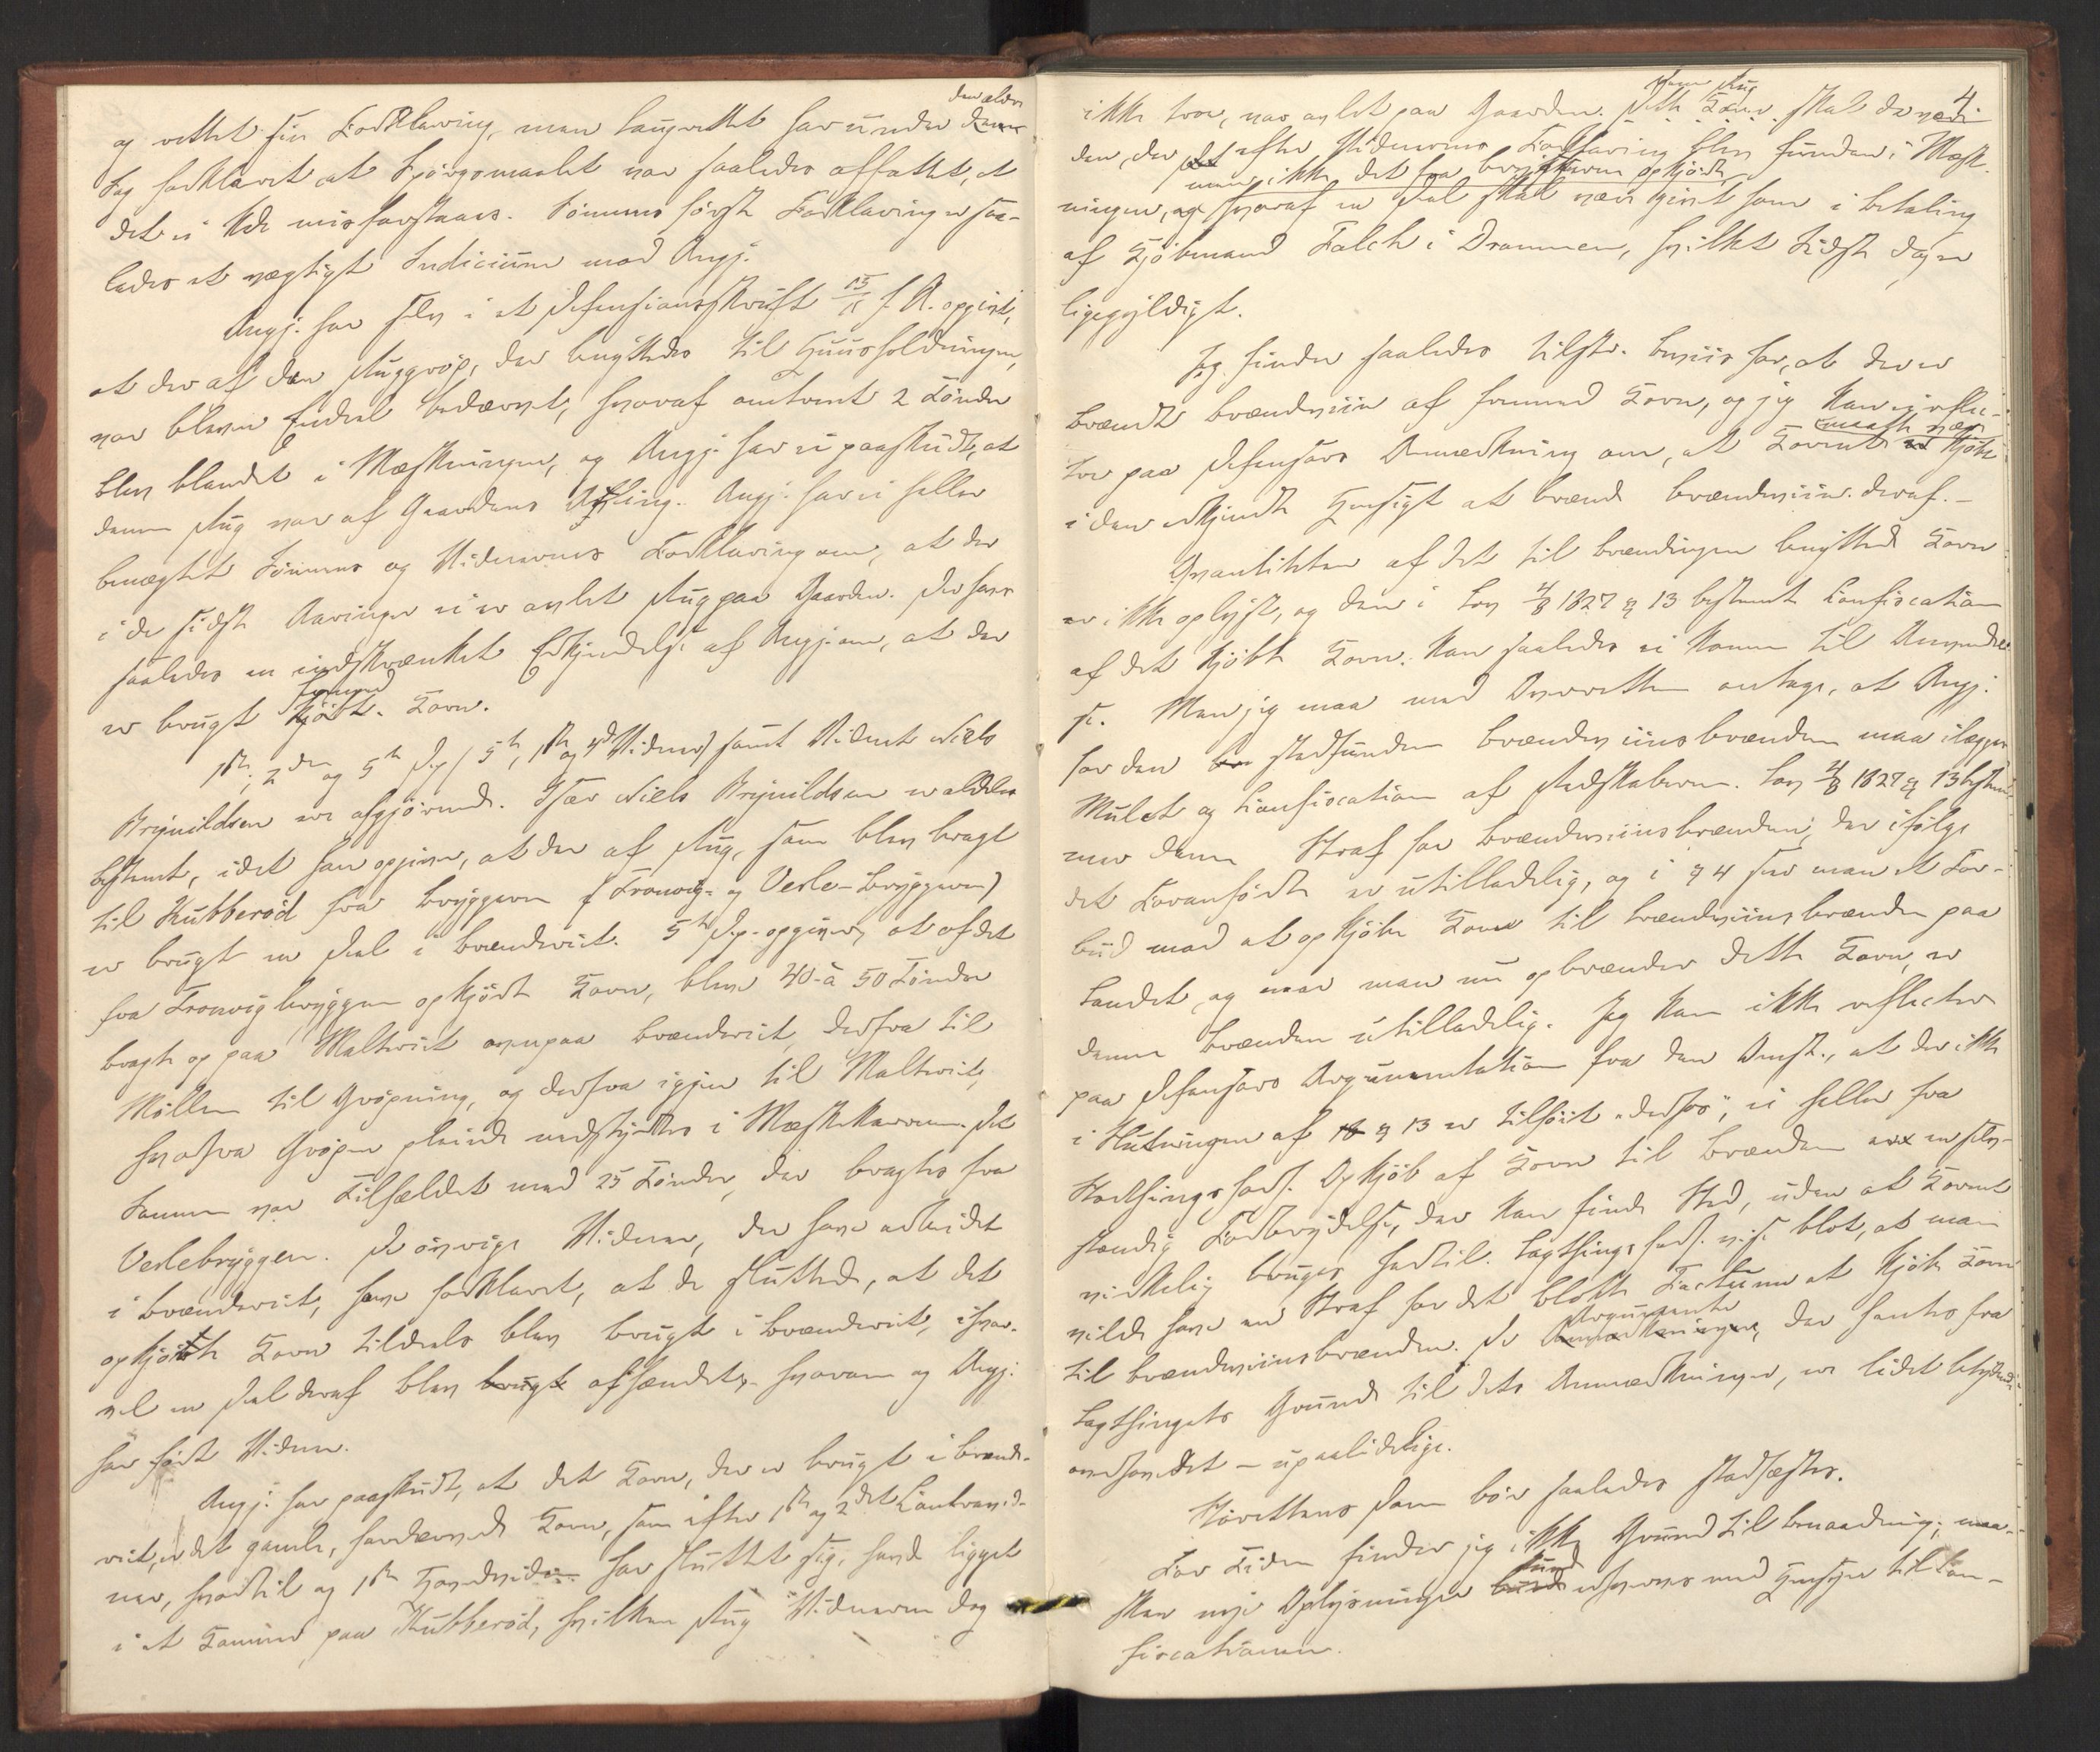 den ældre
og rettet sin Forklaring, men Laugrettet har under denne
Sag forklaret at Spörgsmaalet var saaledes affattet, at
det ei kde misforstaaes. Tömmes förste Forklaring er saa-
ledes et vægtigt Indicium mod Angj.
Angj. har selv i et Defensionsskrift 15/11 f. A. opgivet,
at der af den Ruggröp, der benyttedes til Huusholdningen,
var bleven Endeel bedærvet, hvoraf omtrent 2 Tönder
blev blandet i Mæskningen, og Angj. har ei paastaaet, at
denne Rug var af Gaardens Avling. Angj. har ei heller
benægtet Tömmes og Vidnernes Forklaring om, at der
i de sidste Aaringer ei er avlet Rug paa Gaarden. Der haves
saaledes en indskrænket Erkjendelse af Angj. om, at der
er brugt fremmed kjöbt Korn.
1ste, 2den og 5te Dep. (5te, 1ste og 4de Vidner) samt Vidnet Niels
Brynildsen ere afgjörende. Især Niels Brynildsen er aldeles
bestemt, idet han opgiver, at der af Rug, som blev bragt
til Kubberöd fra Bryggerne (Tronvig- og Verle-Bryggerne)
er brugt en Deel i Brænderiet. 5te Dep. opgiver, at af det
fra Tronvigbryggen opkjörte Korn, blev 40 à 50 Tönder
bragt op paa Malteriet ovenpaa Brænderiet, derfra til
Möllen til Gröpning, og derfra igjen til Malteriet,
hvorfra Gröpen pleiede nedstyrtes i Mæskekarrene. Det
Samme var Tilfældet med 25 Tönder, der bragtes fra
Verlebryggen. De övrige Vidner, der have arbeidet
i Brænderiet, have forklaret, at de sluttede, at det
opkjörte Korn tildeels blev brugt i Brænderiet, ihvor-
vel en Deel deraf blev brugt afhændet, hvorom og Angj.
har fört Vidner.
Angj. har paastaaet, at det Korn, der er brugt i Brænde-
riet, er det gamle, fordærvede Korn, som efter 1ste og 2det Contravid-
ner, hvortil og 1ste Hovedvidne har sluttet sig, havde ligget
i et Kammer paa Kubberöd, hvilken Rug Vidnerne dog
4
ikke troe, var avlet paa Gaarden. Dette Korn denne Rug skal da være
den, der det efter Vidnernes Forklaring blev funden i Mæsk-
ningen, men ikke det fra bryggerne opkjörte og hvoraf en Deel skal være givet som i Betaling
af Kjöbmand Falch i Drammen, hvilket Sidste dog er
ligegyldigt.
Jeg finder saaledes tilstr. Beviis for, at der er
brændt Brændeviin af fremmed Korn, og jeg kan ei reflec-
tere paa Defensors Anmærkning om, at Kornet er maatte være kjöbt
i den erkjendte Hensigt at brænde Brændeviin deraf. –
Qvantiteten af det til Brændingen benyttede Korn
er ikke oplyst, og den i Lov 4/8 1827 § 13 bestemte Confiscation
af det kjöbte Korn kan saaledes ei komme til Anvendel-
se. Men jeg maa med Overretten antage, at Angj.
for den stedfundne Brændeviinsbrænden maa ilægges
Mulct og Confiscation af Redskaberne. Lov 4/8 1827 § 13 bestem-
mer denne Straf for Brændeviinsbrænden, der ifölge
det Foranförte er utilladelig, og i § 4 sees man et For-
bud mod at opkjöbe Korn til Brændeviinsbrænden paa
Landet, og naar man nu opbrænder dette Korn, er
denne Brænden utilladelig. Jeg kan ikke reflectere
paa Defensors Argumentation fra den Omst., at der ikke
i Slutningen af § 13 er tilföiet „derfor“, ei heller fra
Storthingsforh. Opkjöb af Korn til Brænden er en selv-
stændig Forbrydelse, der kan finde Sted, uden at Kornet
virkelig bruges hertil. Lagthingsforh. vise blot, at man
vilde have en Straf for det blotte Factum at kjöbe Korn
til Brændeviinsbrænden. De Anmærkninger Argumenter, der hentes fra
Lagthingets Grunde til dets Anmærkninger, ere lidet betydende
overhovedet – upaalidelige.
Höiestes Dom bör saaledes stadfæstes.
For Tiden finder jeg ikke Grund til Benaadning; maa-
skee nye Oplysninger burde kunde erhverves med Hensyn til Con-
fiscationen.